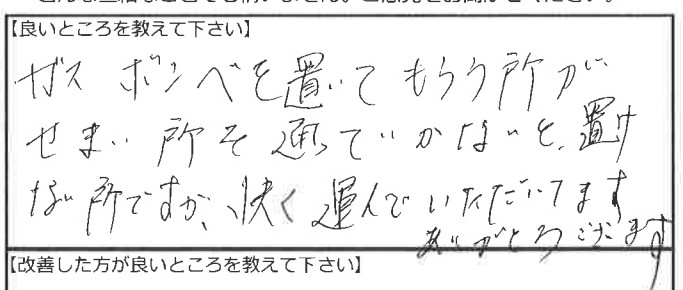 【良いところを教えて下さい】
ガスボンベを置いてもらう所が
せまい所を通っていかないと、置け
ない所ですが、快く運んでいただいてます
ありがとうございます
【改善した方が良いところを教えて下さい】